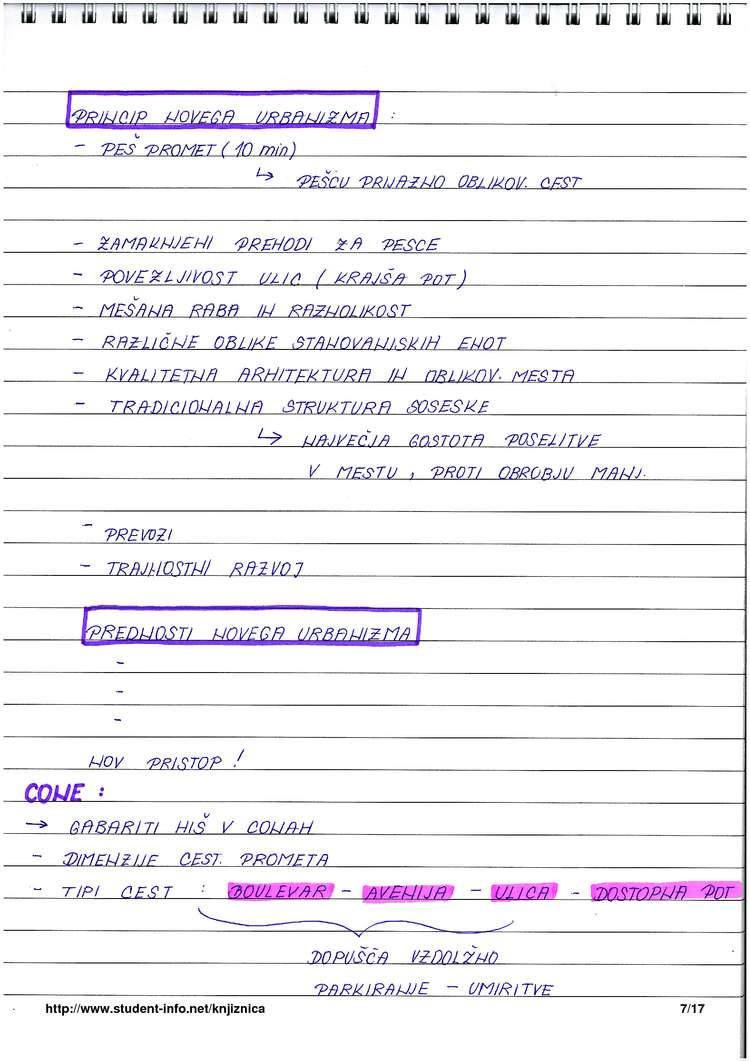 PRINCIP NOVEGA URBANIZMA :
- PEŠ PROMET ( 10 min)
↳ PEŠCU PRIJAZNO OBLIKOV. CEST
- ZAMAKNJENI PREHODI ZA PESCE
- POVEZLJIVOST ULIC ( KRAJŠA POT )
- MEŠANA RABA IN RAZNOLIKOST
- RAZLIČNE OBLIKE STANOVANJSKIH ENOT
- KVALITETNA ARHITEKTURA IN OBLIKOV. MESTA
- TRADICIONALNA STRUKTURA SOSESKE
↳ NAJVEČJA GOSTOTA POSELITVE
V MESTU , PROTI OBROBJU MANJ.
- PREVOZI
- TRAJNOSTNI RAZVOJ
PREDNOSTI NOVEGA URBANIZMA
-
-
-
NOV PRISTOP !
CONE :
→ GABARITI HIŠ V CONAH
- DIMENZIJE CEST. PROMETA
- TIPI CEST : BOULEVAR - AVENIJA - ULICA - DOSTOPNA POT
DOPUŠČA VZDOLŽNO
PARKIRANJE - UMIRITVE
http://www.student-info.net/knjiznica 7/17